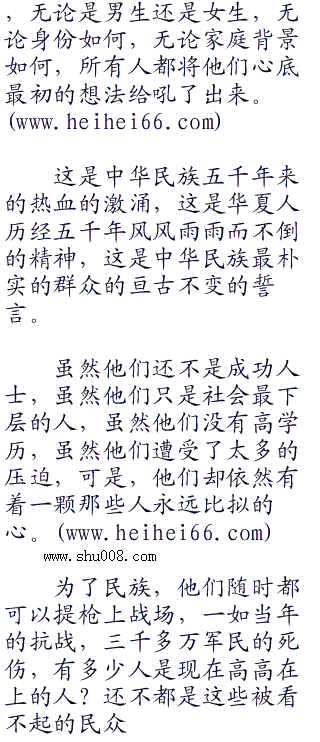 ，无论是男生还是女生，无
论身份如何，无论家庭背景
如何，所有人都将他们心底
最初的想法给吼了出来。
(www.heihei66.com)
这是中华民族五千年来
的热血的激涌，这是华夏人
历经五千年风风雨雨而不倒
的精神，这是中华民族最朴
实的群众的亘古不变的誓
言。
虽然他们还不是成功人
士，虽然他们只是社会最下
层的人，虽然他们没有高学
历，虽然他们遭受了太多的
压迫，可是，他们却依然有
着一颗那些人永远比拟的
心。(www.heihei66.com)
www.shu008.com
为了民族，他们随时都
可以提枪上战场，一如当年
的抗战，三千多万军民的死
伤，有多少人是现在高高在
上的人？还不都是这些被看
不起的民众